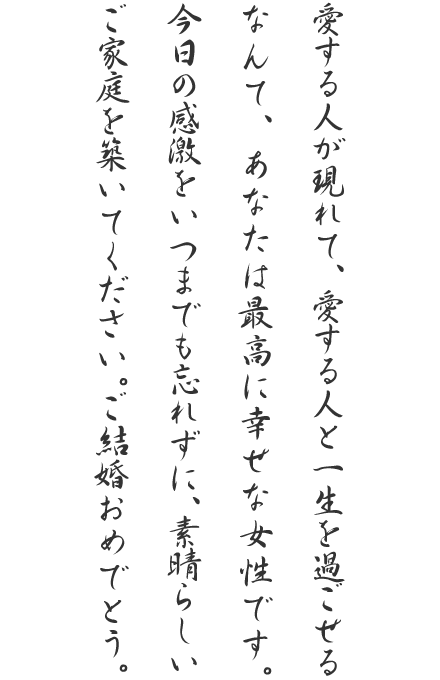 愛する人が現れて、愛する人と一生を過ごせる
なんて、あなたは最高に幸せな女性です。
今日の感激をいつまでも忘れずに、素晴らしい
ご家庭を築いてください。ご結婚おめでとう。